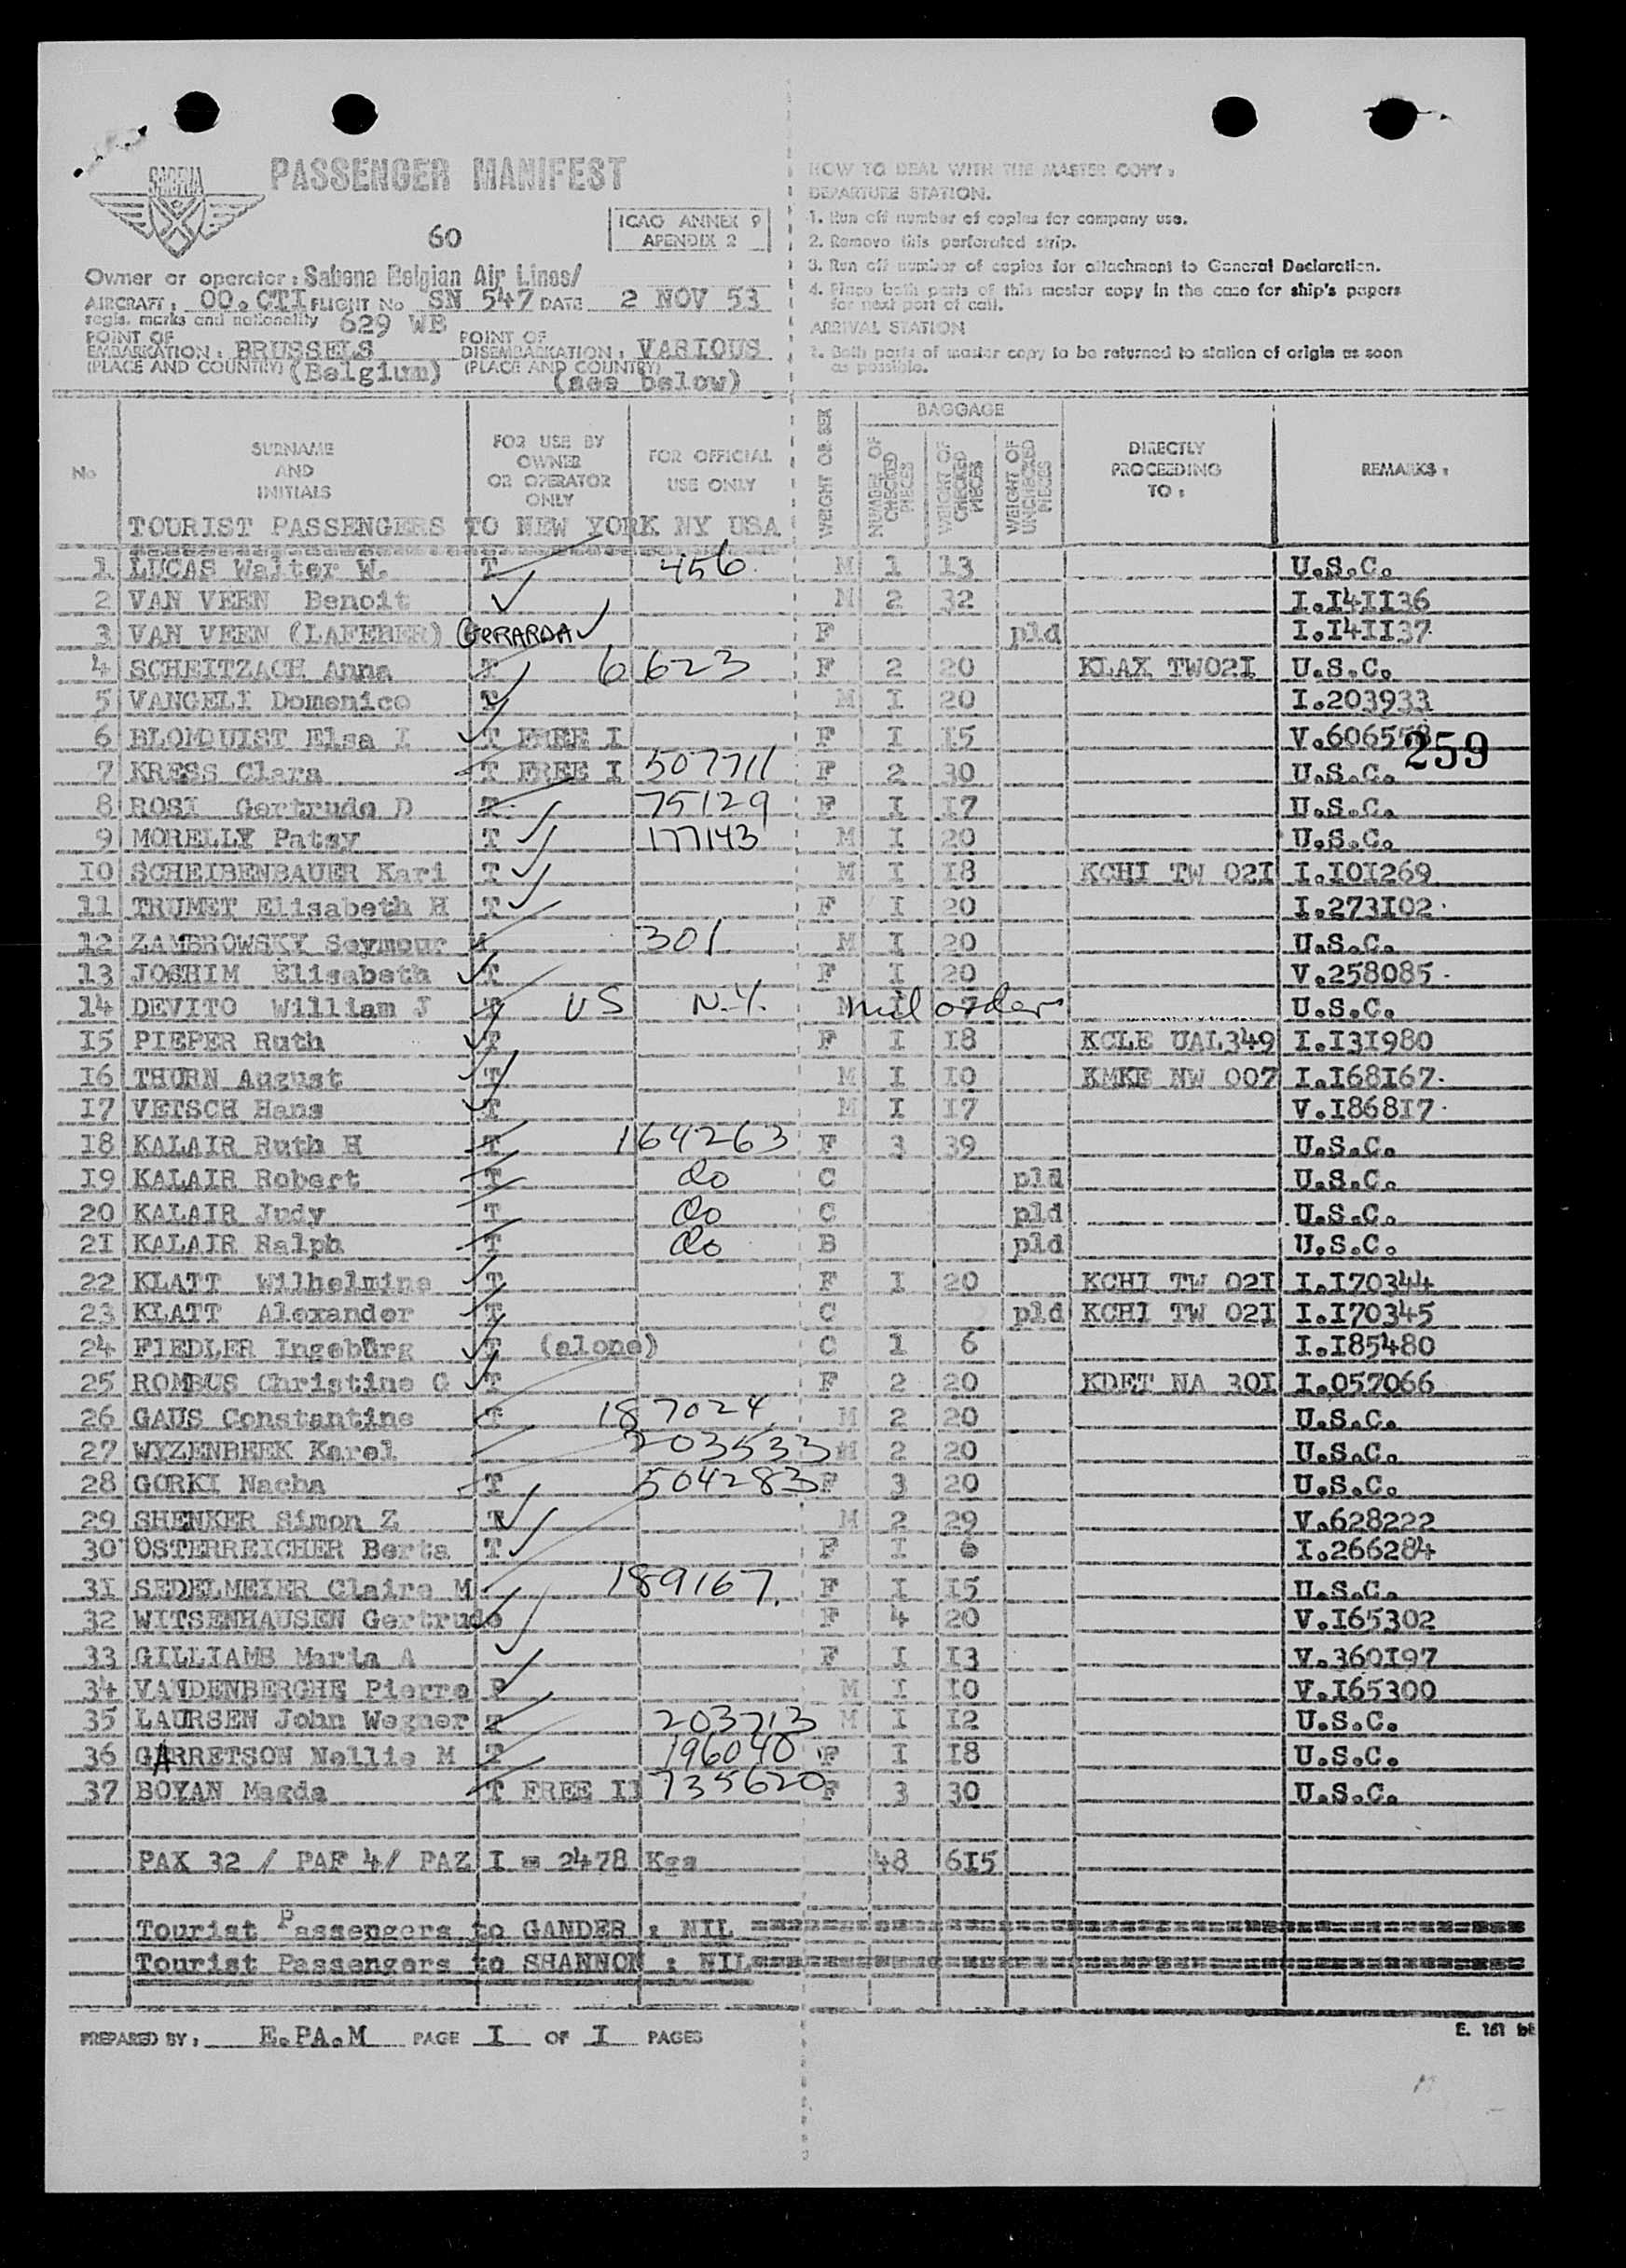 SABENA
PASSENGER MANIFEST
60
ICAO ANNEX 9
APENDIX 2
Owner or operator : Sabena Belgian Air Lines/
AIRCRAFT : OO.CTI FLIGHT No SN 547 DATE 2 NOV 53
regis. marks and nationality 629 WB
POINT OF EMBARKATION : BRUSSELS
(PLACE AND COUNTRY) (Belgium)
POINT OF DISEMBARKATION : VARIOUS
(PLACE AND COUNTRY) (see below)
HOW TO DEAL WITH THE MASTER COPY :
DEPARTURE STATION.
1. Run off number of copies for company use.
2. Remove this perforated strip.
3. Run off number of copies for attachment to General Declaration.
4. Place both parts of this master copy in the case for ship's papers
for next port of call.
ARRIVAL STATION
1. Both parts of master copy to be returned to station of origin as soon
as possible.
No
SURNAME AND INITIALS
FOR USE BY OWNER OR OPERATOR ONLY
FOR OFFICIAL USE ONLY
WEIGHT OR SEX
BAGGAGE
NUMBER OF CHECKED PIECES
WEIGHT OF CHECKED PIECES
WEIGHT OF UNCHECKED PIECES
DIRECTLY PROCEEDING TO :
REMARKS :
TOURIST PASSENGERS TO NEW YORK NY USA
1 LUCAS Walter W. T 456 M 1 13 U.S.C.
2 VAN VEEN Benoit M 2 32 I.141136
3 VAN VEEN (LAFEBER) GERARDA F pld I.141137
4 SCHEITZACH Anna T 6623 F 2 20 KLAX TW021 U.S.C.
5 VANGELI Domenico T M I 20 I.203933
6 BLOMQUIST Elsa I T FREE I F I 15 V.606558
259
7 KRESS Clara T FREE I 507711 F 2 30 U.S.C.
8 ROSI Gertrude D T 75129 F I 17 U.S.C.
9 MORELLY Patsy T 177143 M I 20 U.S.C.
10 SCHEIBENBAUER Kari T M I 18 KCHI TW 02I I.I01269
11 TRUMET Elisabeth H T F I 20 I.273I02
12 ZAMBROWSKY Seymour M 301 M I 20 U.S.C.
13 JOSHIM Elisabeth T F I 20 V.258085
14 DEVITO William J T US N.Y. M mil order U.S.C.
15 PIEPER Ruth T F I 18 KCLE UAL349 I.I31980
16 THURN August T M I 10 KMKE NW 007 I.I68167
17 VETSCH Hans T M I 17 V.I86817
18 KALAIR Ruth H T 164263 F 3 39 U.S.C.
19 KALAIR Robert T do C pld U.S.C.
20 KALAIR Judy T do C pld U.S.C.
21 KALAIR Ralph T do B pld U.S.C.
22 KLATT Wilhelmine T F I 20 KCHI TW 02I I.I70344
23 KLATT Alexander T C pld KCHI TW 02I I.I70345
24 FIEDLER Ingebürg T (alone) C 1 6 I.I85480
25 ROMBUS Christine G T F 2 20 KDET NA 30I I.057066
26 GAUS Constantine T 187024 M 2 20 U.S.C.
27 WYZENBEEK Karel 203533 M 2 20 U.S.C.
28 GORKI Nacha T 504283 F 3 20 U.S.C.
29 SHENKER Simon Z T M 2 29 V.628222
30 OSTERREICHER Berta T F I 6 I.266284
31 SEDELMEIER Claire M 189167. F I 15 U.S.C.
32 WITSENHAUSEN Gertrude F 4 20 V.I65302
33 GILLIAMS Maria A F I 13 V.360I97
34 VANDENBERGHE Pierre P M I 10 V.I65300
35 LAURSEN John Wegner T 203713 M I 12 U.S.C.
36 GARRETSON Nellie M T 196040 F I 18 U.S.C.
37 BOYAN Magda T FREE II 735620 F 3 30 U.S.C.
PAX 32 / PAF 4/ PAZ I = 2478 Kgs 48 615
Tourist Passengers to GANDER : NIL
Tourist Passengers to SHANNON : NIL
PREPARED BY : E.PA.M PAGE I OF I PAGES
E. 161 be